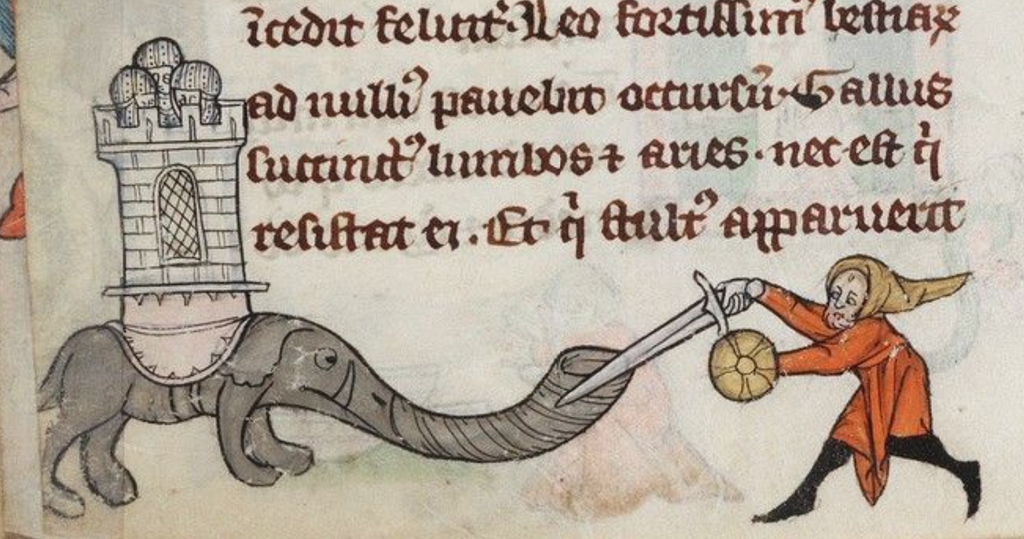 īcedit felicit᾿. Leo fortissim᾿ bestiaꝝ
ad nulliꝰ pauebit occursū. Gallus
succinctꝰ lumbos ⁊ aries . nec est q̇
resistat ei . Et q̇ stultꝰ apparuerit